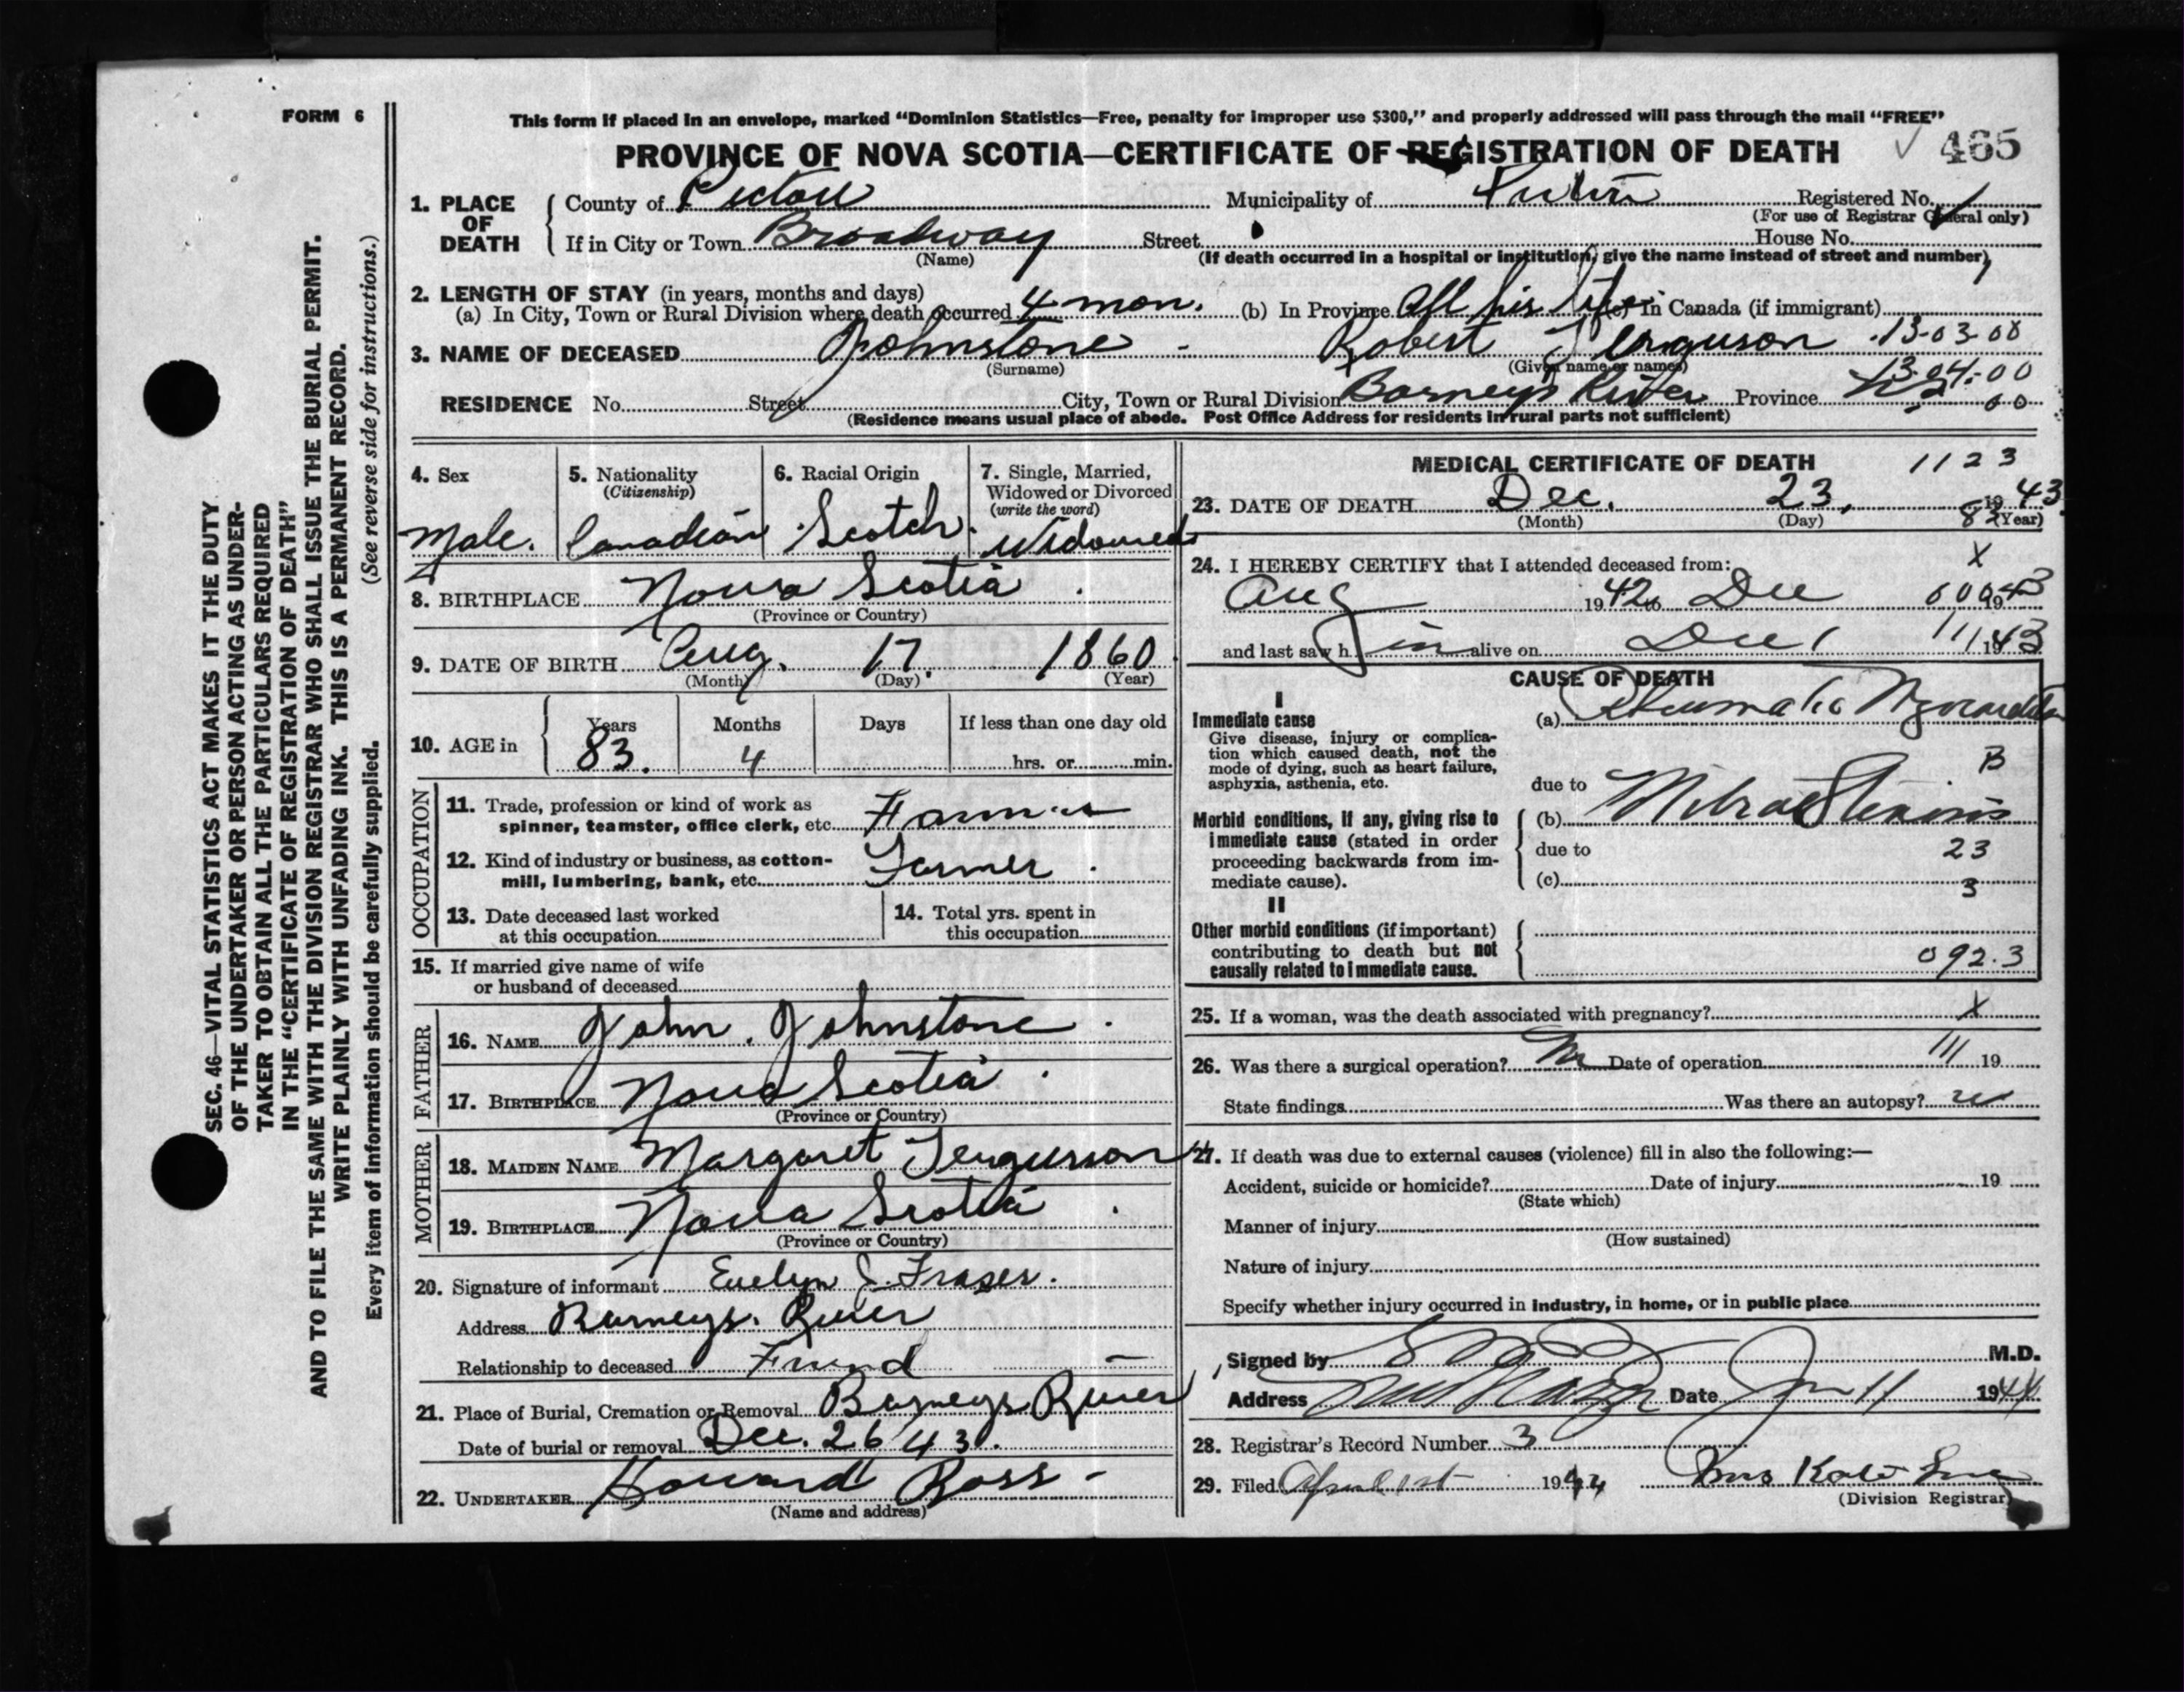 FORM 6
This form if placed in an envelope, marked “Dominion Statistics—Free, penalty for improper use $300,” and properly addressed will pass through the mail “FREE”
PROVINCE OF NOVA SCOTIA—CERTIFICATE OF REGISTRATION OF DEATH 465
1. PLACE OF DEATH
County of Pictou Municipality of Pictou Registered No.
(For use of Registrar General only)
If in City or Town Broadway Street House No.
(Name) (If death occurred in a hospital or institution, give the name instead of street and number)
2. LENGTH OF STAY (in years, months and days)
(a) In City, Town or Rural Division where death occurred 4 mon. (b) In Province All his life (c) In Canada (if immigrant)
3. NAME OF DECEASED Johnstone - Robert Ferguson 13-03-00
(Surname) (Given name or names)
13-04-00
RESIDENCE No. Street City, Town or Rural Division Barneys River Province N.S. 00
(Residence means usual place of abode. Post Office Address for residents in rural parts not sufficient)
4. Sex
Male.
5. Nationality
(Citizenship)
Canadian
6. Racial Origin
Scotch.
7. Single, Married,
Widowed or Divorced
(write the word)
Widowed
8. BIRTHPLACE Nova Scotia
(Province or Country)
9. DATE OF BIRTH Aug. 17. 1860
(Month) (Day) (Year)
10. AGE in
Years Months Days If less than one day old
83. 4 hrs. or min.
OCCUPATION
11. Trade, profession or kind of work as
spinner, teamster, office clerk, etc. Farmer
12. Kind of industry or business, as cotton-
mill, lumbering, bank, etc. Farmer
13. Date deceased last worked
at this occupation
14. Total yrs. spent in
this occupation
15. If married give name of wife
or husband of deceased
FATHER
16. NAME John. Johnstone
17. BIRTHPLACE Nova Scotia
(Province or Country)
MOTHER
18. MAIDEN NAME Margaret Fergusson
19. BIRTHPLACE Nova Scotia
(Province or Country)
20. Signature of informant Evelyn J. Fraser.
Address Barneys. River
Relationship to deceased Friend
21. Place of Burial, Cremation or Removal Barneys River
Date of burial or removal Dec. 26/43.
22. UNDERTAKER Howard Ross -
(Name and address)
MEDICAL CERTIFICATE OF DEATH 1123
23. DATE OF DEATH Dec. 23, 1943
(Month) (Day) (Year)
24. I HEREBY CERTIFY that I attended deceased from: X
Aug 1942 to Dec 1943
and last saw h im alive on Dec 1 1943
CAUSE OF DEATH
I
Immediate cause
Give disease, injury or complica-
tion which caused death, not the
mode of dying, such as heart failure,
asphyxia, asthenia, etc.
(a) Rheumatic Myocarditis
B
due to
Morbid conditions, if any, giving rise to
immediate cause (stated in order
proceeding backwards from im-
mediate cause).
(b) Mitral Stenosis
due to 23
(c) 3
II
Other morbid conditions (if important)
contributing to death but not
causally related to immediate cause.
092.3
25. If a woman, was the death associated with pregnancy? X
26. Was there a surgical operation? No Date of operation 111 19
State findings Was there an autopsy?
27. If death was due to external causes (violence) fill in also the following:—
Accident, suicide or homicide? Date of injury 19
(State which)
Manner of injury
(How sustained)
Nature of injury
Specify whether injury occurred in industry, in home, or in public place
Signed by M.D.
Address Date Jan 11 1944
28. Registrar's Record Number 3
29. Filed April 1st 1944 Mrs Kate
(Division Registrar)
SEC. 46—VITAL STATISTICS ACT MAKES IT THE DUTY
OF THE UNDERTAKER OR PERSON ACTING AS UNDER-
TAKER TO OBTAIN ALL THE PARTICULARS REQUIRED
IN THE “CERTIFICATE OF REGISTRATION OF DEATH”
AND TO FILE THE SAME WITH THE DIVISION REGISTRAR WHO SHALL ISSUE THE BURIAL PERMIT.
WRITE PLAINLY WITH UNFADING INK. THIS IS A PERMANENT RECORD.
Every item of information should be carefully supplied. (See reverse side for instructions.)